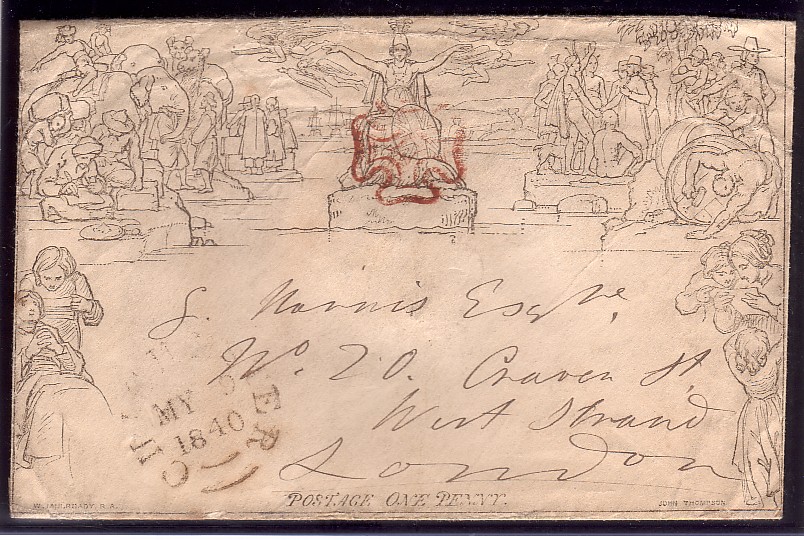 S. Norris Esqre.
No. 20. Craven St.
West Strand
London
MY
1840
POSTAGE ONE PENNY.
W. MULREADY. R.A.
JOHN THOMPSON